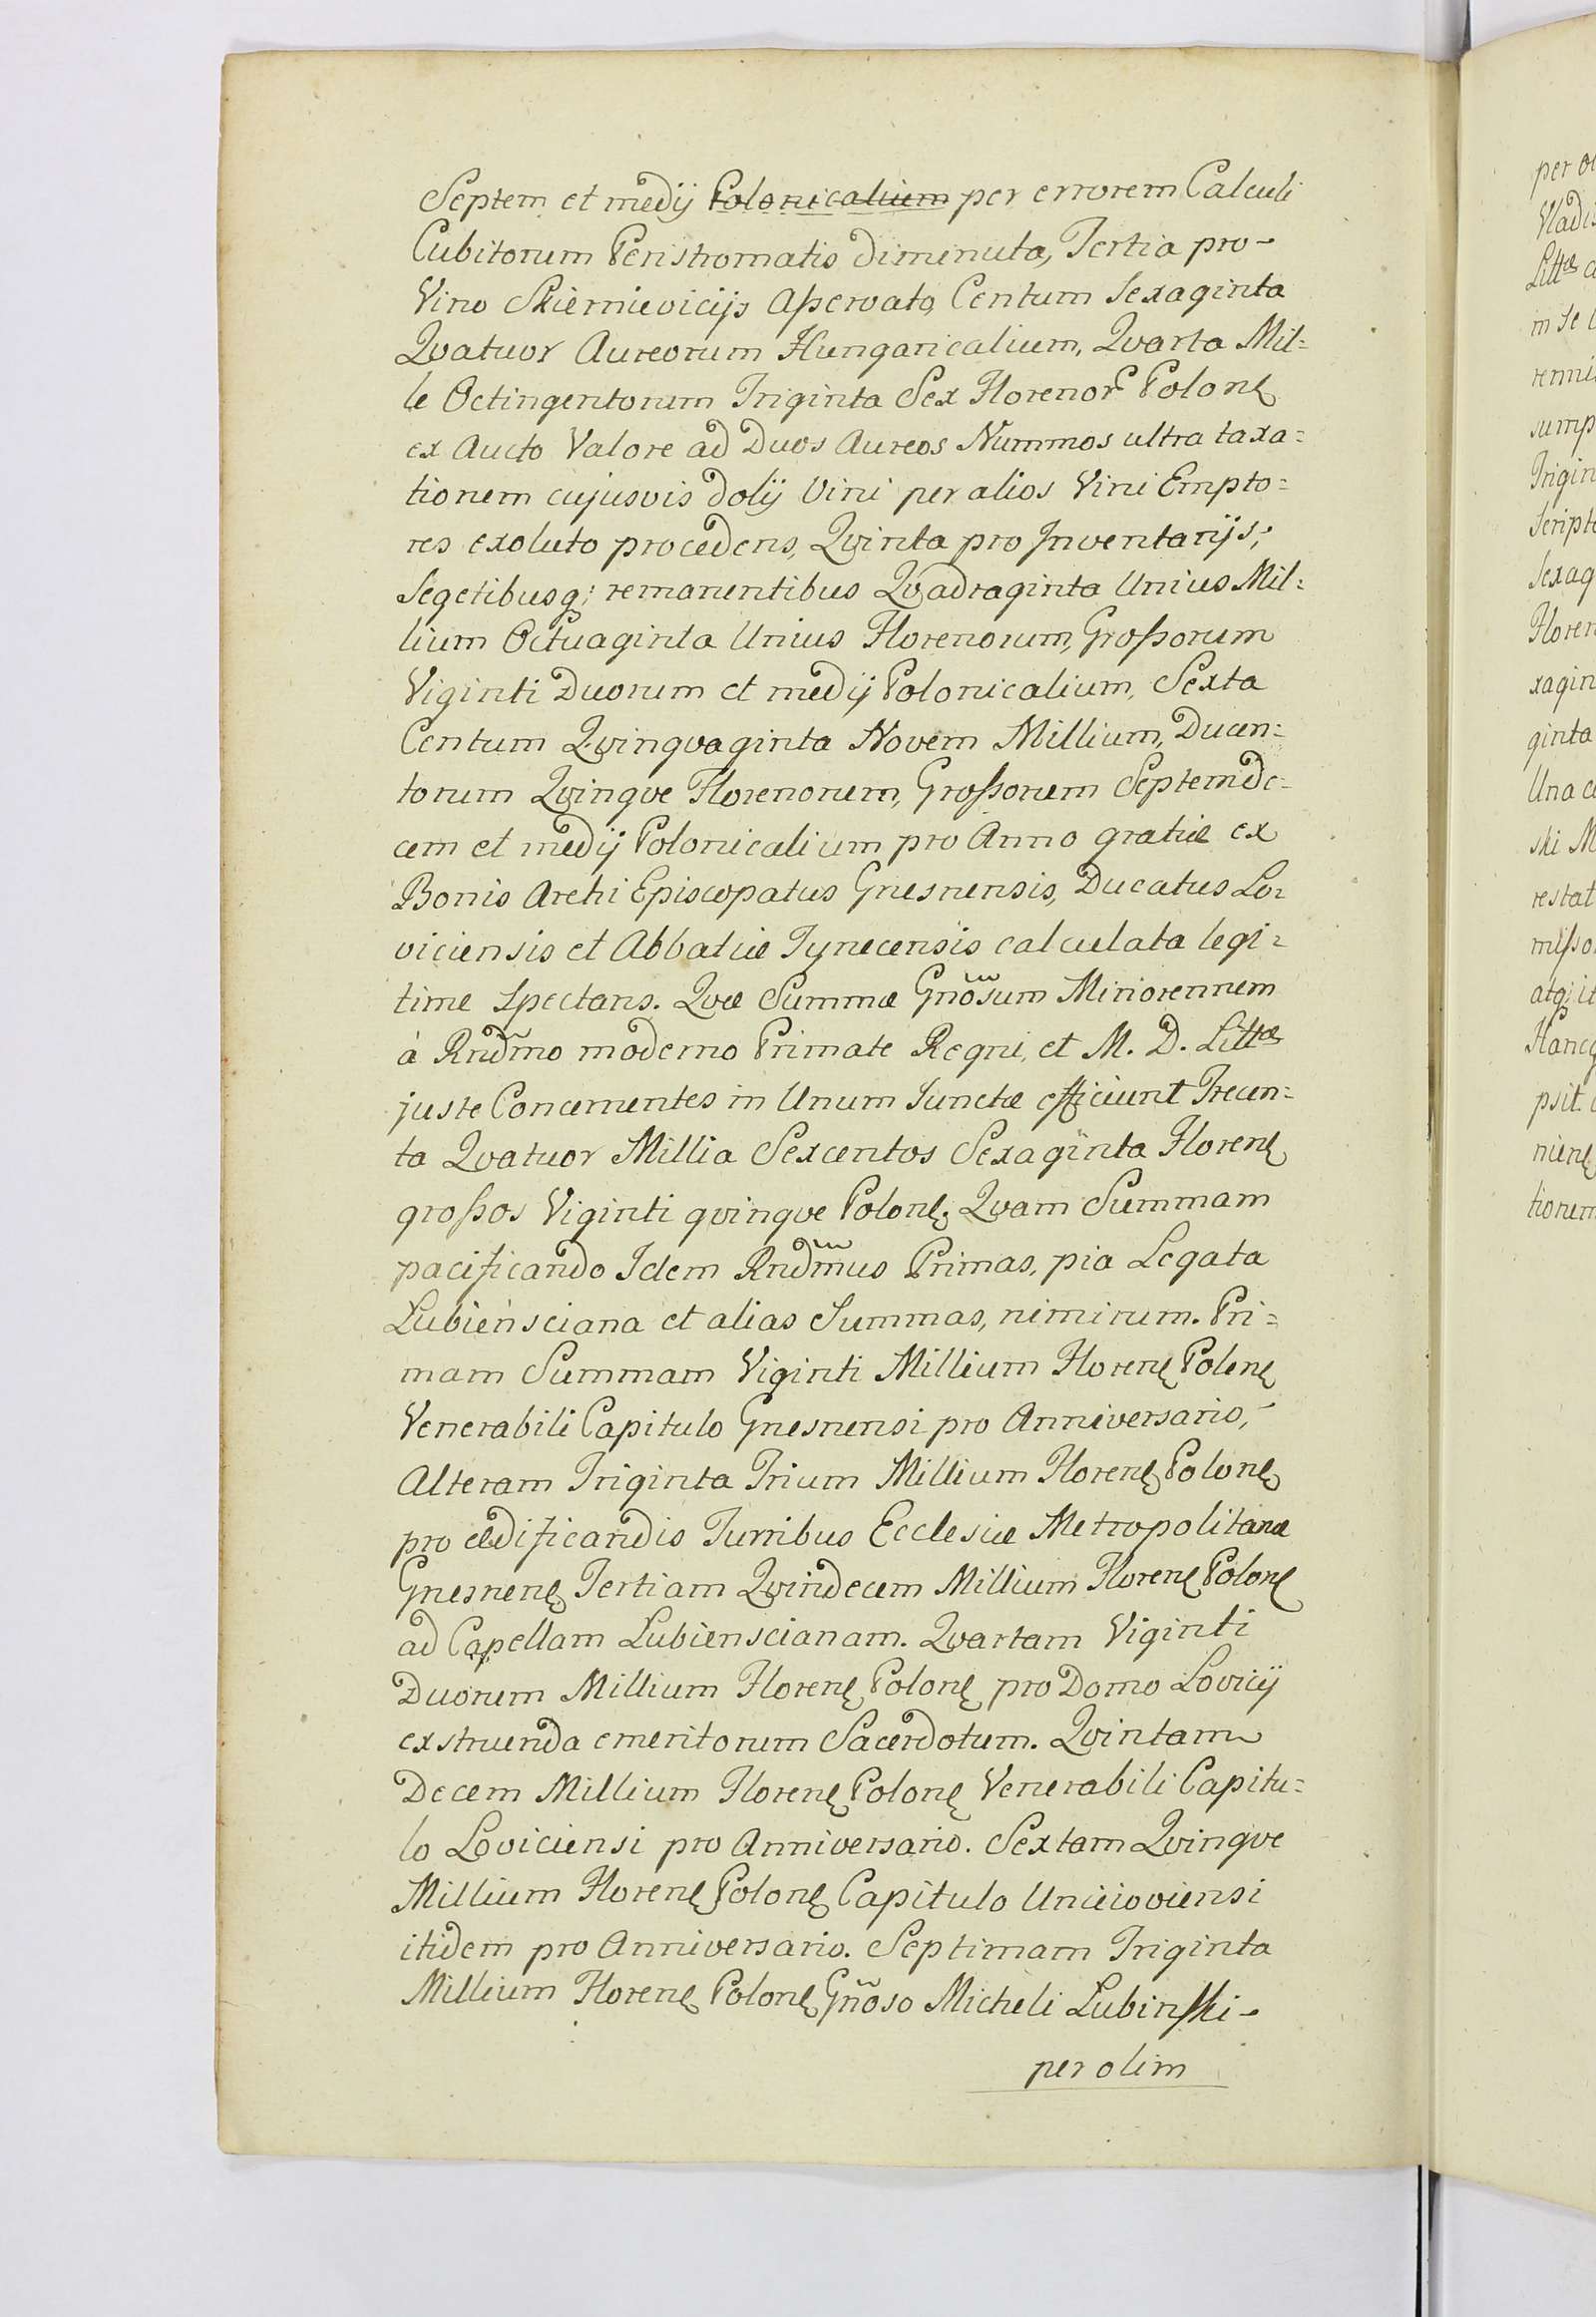 Septem et medij Polonicalium per errorem Calculi
Cubitorum Peristromatis diminuta, Tertia pro-
Vino Skierniewicijs Aßervato, Centum Sexaginta
Qvatuor Aureorum Hungaricalium, Qvarta Mil=
le Octingentorum Triginta Sex Florenor Polonę
ex Aucto Valore ad Duos Aureos Nummos ultra taxa=
tionem cujusvis dolij Vini per alios Vini Empto=
res exoluto procedens, Qvinta pro Inventarijs;
Segetibusq; remanentibus Qvadraginta Unius Mil=
lium Octuaginta Unius Florenorum, Großorum
Viginti Duorum et medij Polonicalium, Sexta
Centum Qvinqvaginta Novem Millium, Ducen=
torum Qvinqve Florenorum, Großorum Septemde=
cem et medij Polonicalium pro Anno gratiæ ex
Bonis Archi Episcopatus Gnesnensis, Ducatus Lo=
viciensis et Abbatiæ Tynecensis calculata legi=
time Spectans. Qvæ Summæ Gnosum Miniorennem
à Rndmo moderno Primate Regni, et M. D. Littæ
juste Concernentes in Unum Iunctæ efficiunt Trecen=
ta Qvatuor Millia Sexcentos Sexaginta Florenę
großos Viginti qvinqve Polonę. Qvam Summam
pacificando Idem Rndmus Primas, pia Legata
Lubiensciana et alias Summas, nimirum. Pri=
mam Summam Viginti Millium Florenę Polonę
Venerabili Capitulo Gnesnensi pro Anniversario,-
Alteram Triginta Trium Millium Florenę Polonę
pro ædificandis Turribus Ecclesiæ Metropolitanæ
Gnesnenę Tertiam Qvindecem Millium Florenę Polonę
ad Capellam Lubienscianam. Qvartam Viginti
Duorum Millium Florenę Polonę pro Domo Lovicij
exstruenda emeritorum Sacerdotum. Qvintam
Decem Millium Florenę Polonę Venerabili Capitu=
lo Loviciensi pro Anniversario. Sextam Qvinqve
Millium Florenę Polonę Capitulo Unieioviensi
itidem pro Anniversario. Septimam Triginta
Millium Florenę Polonę Gnoso Micheli Lubinski-
per olim